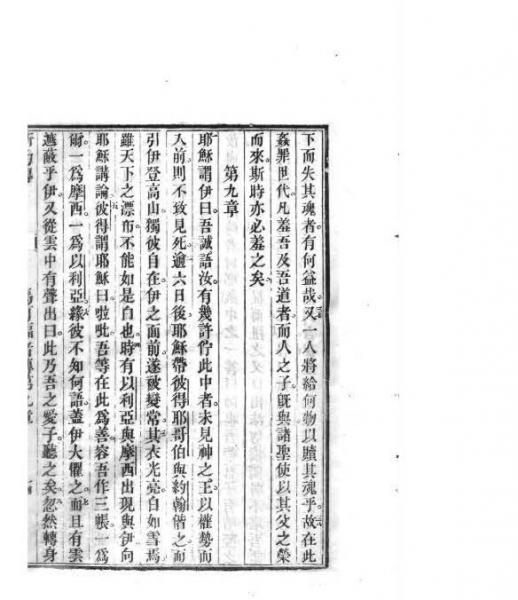 下而失其魂者有何益哉又一人將給何物以贖其魂乎故在此
姦罪世代凡羞吾及吾道者而人之子旣與諸聖使以其父之榮
而來斯時亦必羞之矣
第九章
耶穌謂伊曰吾誠語汝有幾許佇此中者未見神之王以權勢而
入前則不致見死適六日後耶穌帶彼得耶哥伯與約翰偕之而
引伊登高山獨彼自在伊之面前遂被變常其衣光亮白如雪焉
雖天下之漂布不能如是白也時有以利亞與摩西出現與伊向
耶穌講論彼得謂耶穌曰啦吡吾等在此爲善容吾作三帳一爲
爾一爲摩西一爲以利亞緣彼不知何語蓋伊大懼之而且有雲
遮蔽乎伊又從雲中有聲出曰此乃吾之愛子聽之矣忽然轉身